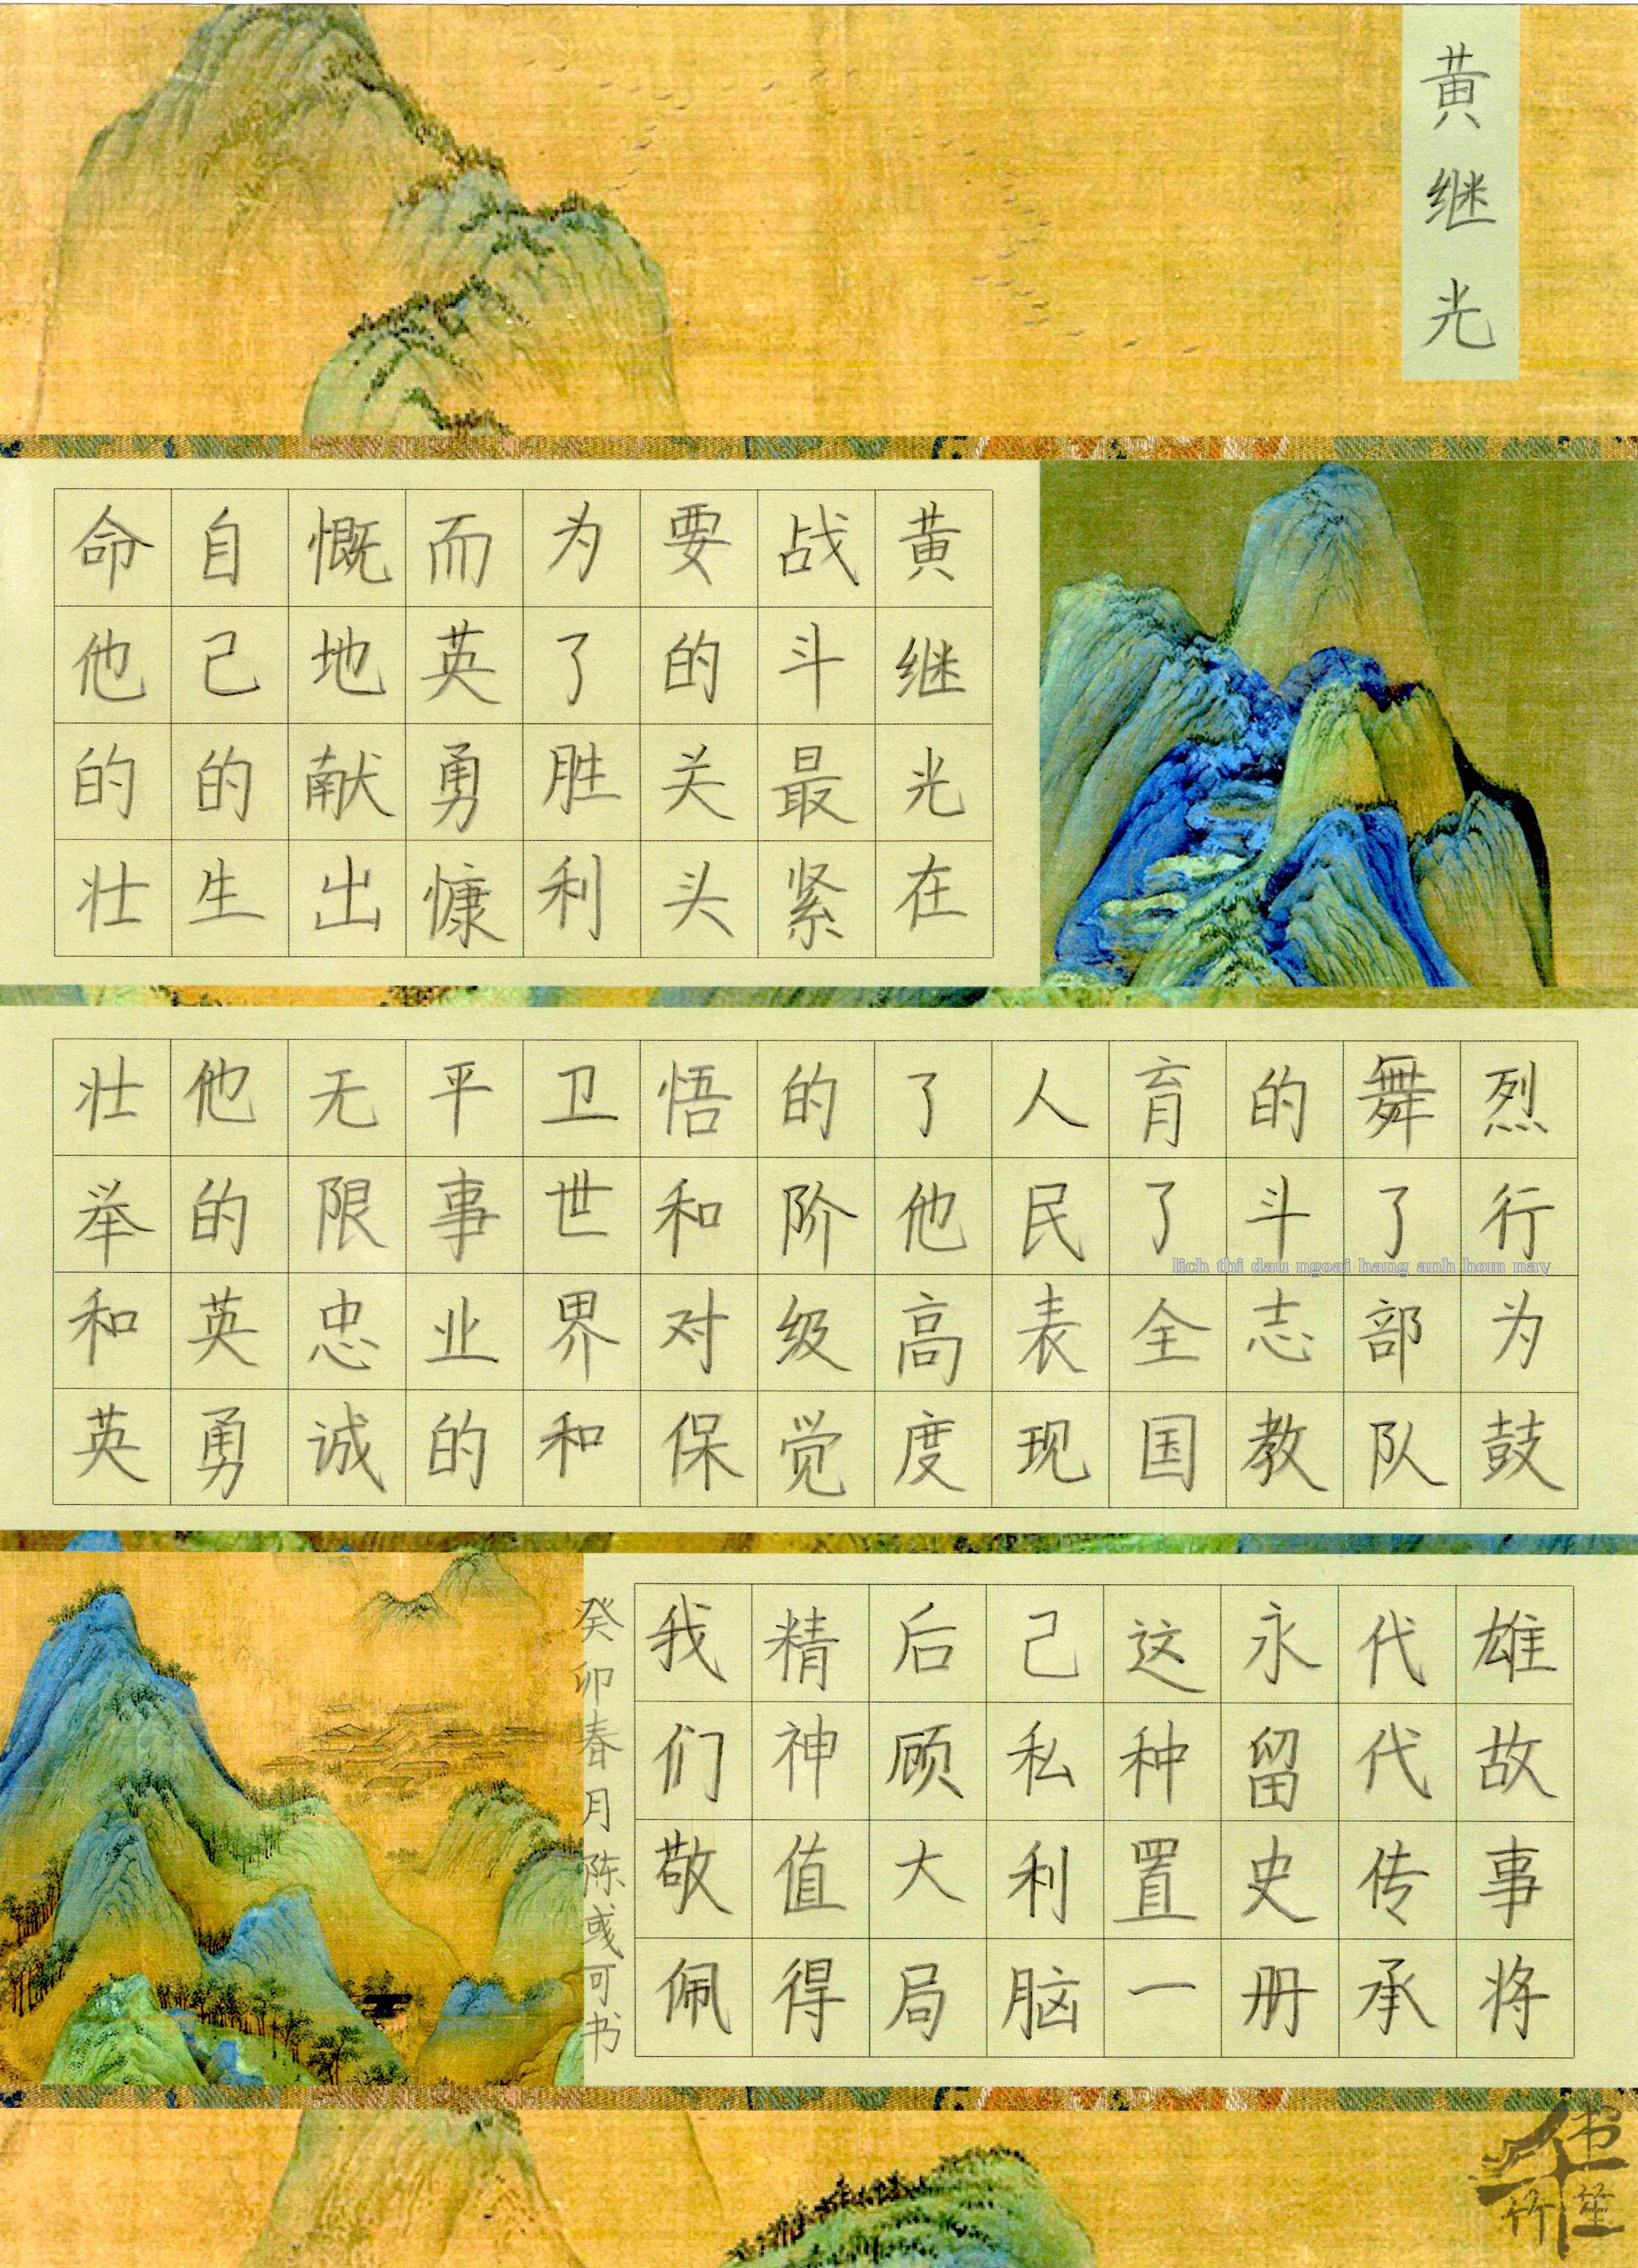 黄继光
黄继光在
战斗最紧
要的关头
为了胜利
而英勇慷
慨地献出
自己的生
命他的壮
烈行为鼓
舞了部队
的斗志教
育了全国
人民表现
了他高度
的阶级觉
悟和对保
卫世界和
平事业的
无限忠诚
他的英勇
壮举和英
雄故事将
代代传承
永留史册
这种置一
己私利脑
后顾大局
精神值得
我们敬佩
癸卯春月陈彧可书
lich thi dau ngoai hang anh hom nay